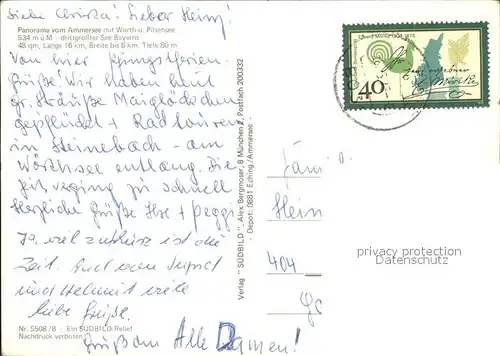 Liebe Christa! Lieber Heinz!
Panorama vom Ammersee mit Wörth-u. Pilsensee
534 m.ü.M - drittgrößter See Bayerns
48 qm, Länge 16 km, Breite bis 6 km, Tiefe 80 m
Von hier Pfingstferien-
Grüße! Wir haben heut
gr. Sträuße Maiglöckchen
gepflückt + Radtouren
in Steinebach - am
Wörthsee entlang. Die
Zeit verging zu schnell
Herzliche Grüße Ilse + Peggi
Ja, viel zu kurz ist die
Zeit. Auch von
und Helmut viele
liebe Grüße.
Nr. 5508/B - Ein SÜDBILD-Relief
Nachdruck verboten
Gruß an Alle Damen!
Verlag "SÜDBILD", Alex Bergmoser, 8 München 2, Postfach 200332
- Depot: 0881 Eching/Ammersee -
40
Fam.
Hein
404
privacy protection
Datenschutz